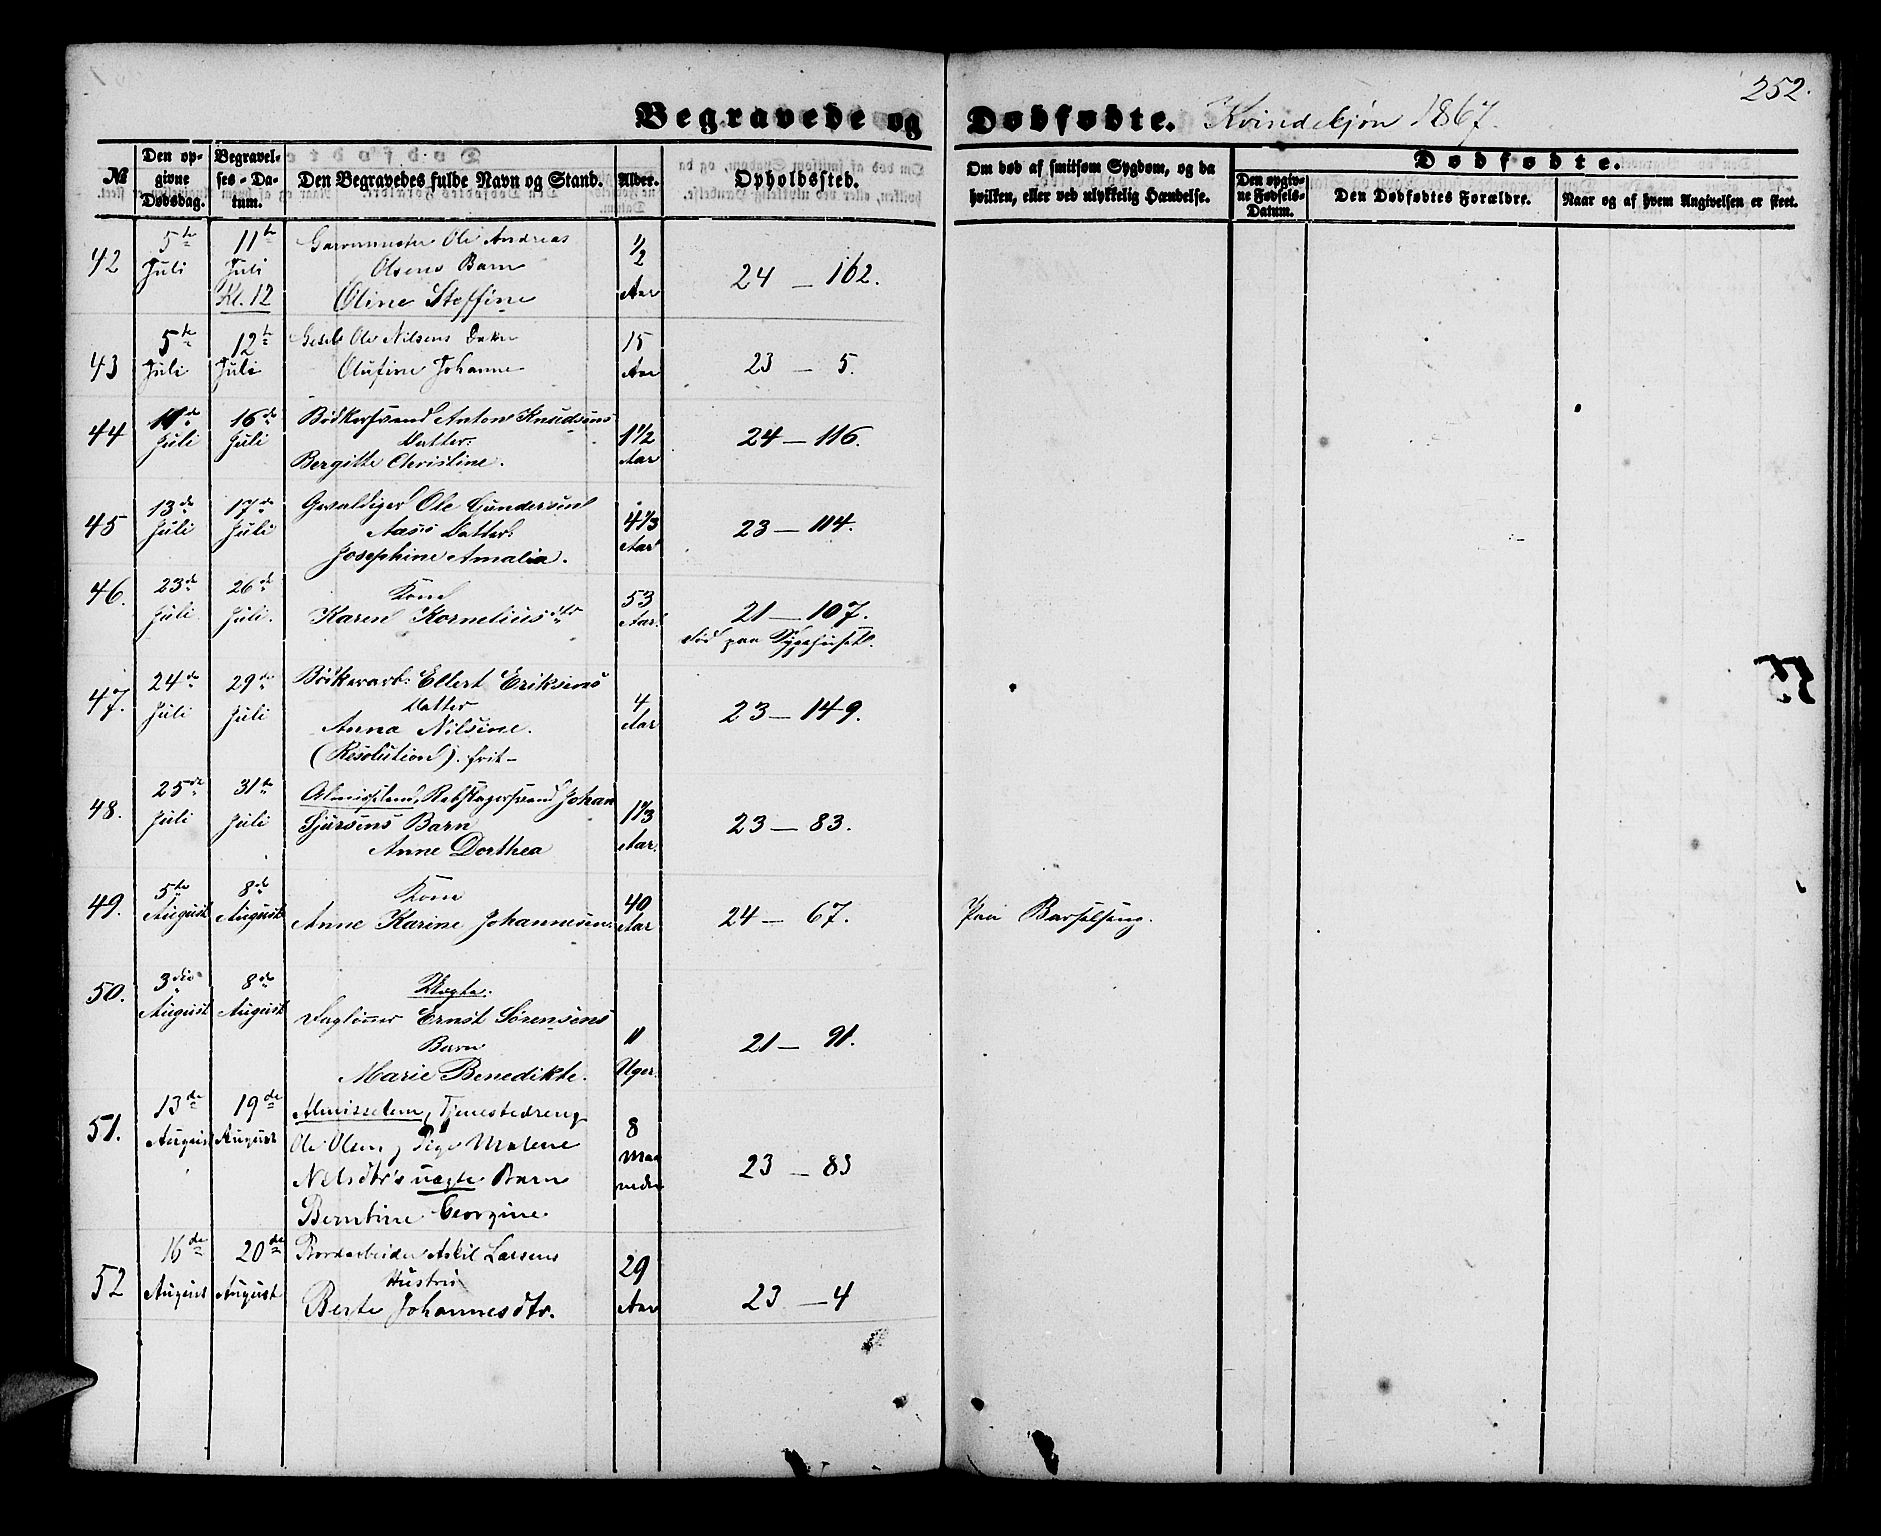 252.
Begravede og Dødfødte. Kvindekjøn 1867.
№
Den opgivne Dødsdag.
Begravelses-Datum.
Den Begravedes fulde Navn og Stand.
Alder.
Opholdssted.
Om død af smitsom Sygdom, og da hvilken, eller ved ulykkelig Hændelse.
Dødfødte.
Den opgivne Fødsels-Datum.
Den Dødfødtes Forældre.
Naar og af hvem Angivelsen er skeet.
42 5te Juli 11te Juli Kl. 12
Garvermester Ole Andreas
Olsens Barn
Oline Steffine
1/2 Aar
24 — 162.
43 5te Juli 12te Juli
Ole Nilsens Datter
Olufine Johanne
15 Aar
23 — 5.
44 Juli 16de Juli
Bødkersvend Anton Knudsens
Datter:
Bergitte Christine.
1 1/2 Aar
24 — 116.
45 13de Juli 17de Juli
Gevaldiger Ole Gundersen
Aass Datter:
Josephine Amalia.
4 1/3 Aar
23 — 114.
46. 23de Juli 26de Juli.
Kone
Karen Korneliusdtr
53 Aar.
21 — 107.
død paa Sygehuset.
47. 24de Juli 29de Juli
Bødkerarb: Ellert Eriksens
Datter
Anna Nilsine.
(Resolution). frit —
4 Aar
23 — 149.
48. 25de Juli 31te Juli
Almisselem, Rebslagersvend Johan
Sjursens Barn
Anne Dorthea
1 1/3 Aar.
23 — 83.
49. 5te August 8de August
Kone
Anne Karine Johannesen.
40 Aar
24 — 67.
Paa Barselseng.
50. 3die August 8de August
Uægte.
Dagløner Ernst Sørensens
Barn
Marie Benedikte.
11 Uger.
21 — 91.
51. 13de August 19de August
Almisselem, Tjenestedreng
Ole Olsen, Pige Malene
Nelsdtr's uægte Barn
Berntine Georgine.
8 Maaneder
23 — 83
52 16de August 20de August
Bordarbeider Askil Larsens
Hustru
Berte Johannesdtr.
29 Aar
23 — 4